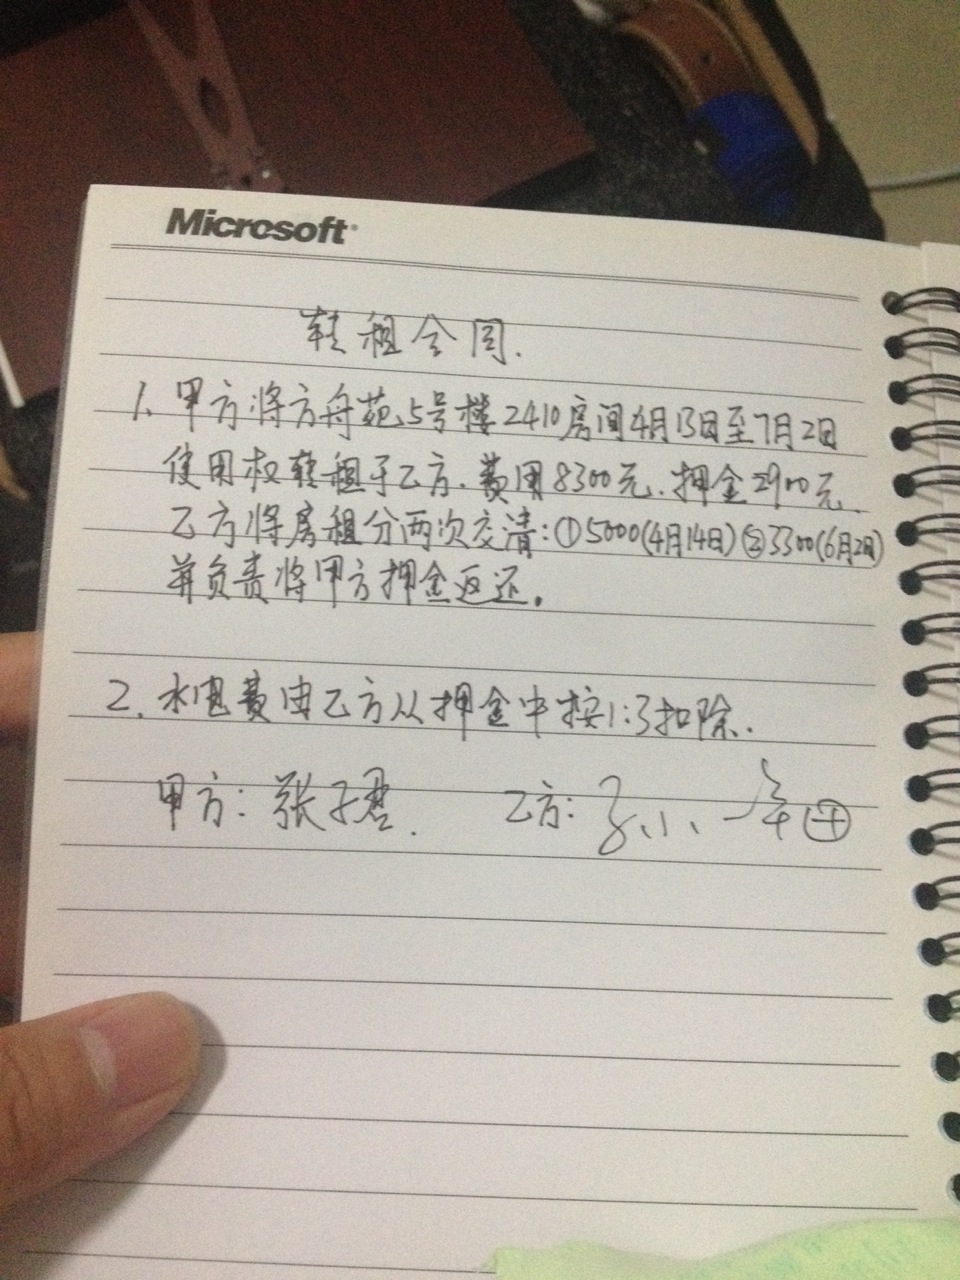 Microsoft
转租合同.
1、甲方将方舟苑5号楼2410房间4月13日至7月2日
使用权转租于乙方.费用8300元.押金2900元.
乙方将房租分两次交清:①5000(4月14日)②3300(6月2日)
并负责将甲方押金返还.
2.水电费由乙方从押金中按1:3扣除.
甲方:张子君. 乙方: